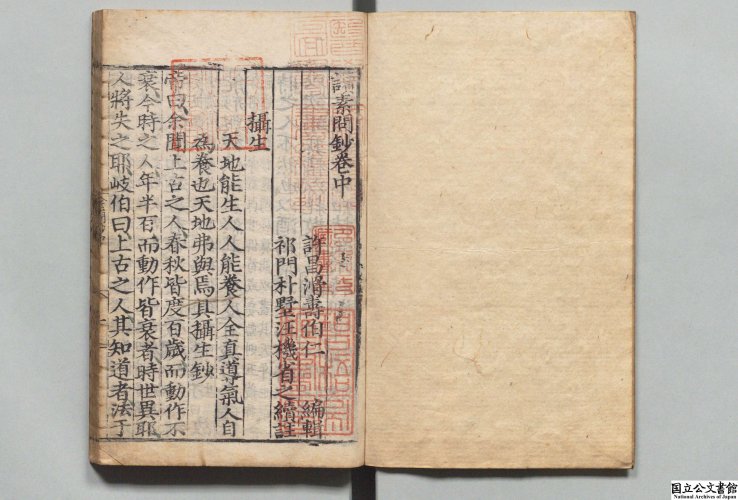 讀素問鈔卷中
許昌滑壽伯仁 編輯
祁門朴墅汪機省之續註
攝生
天地能生人人能養人全真導氣人自
爲養也天地弗與焉具攝生鈔
帝曰余聞上古之人春秋皆度百歲而動作不
衰今時之人年半百而動作皆衰者時世異耶
人將失之耶岐伯曰上古之人其知道者法于
国立公文書館
National Archives of Japan